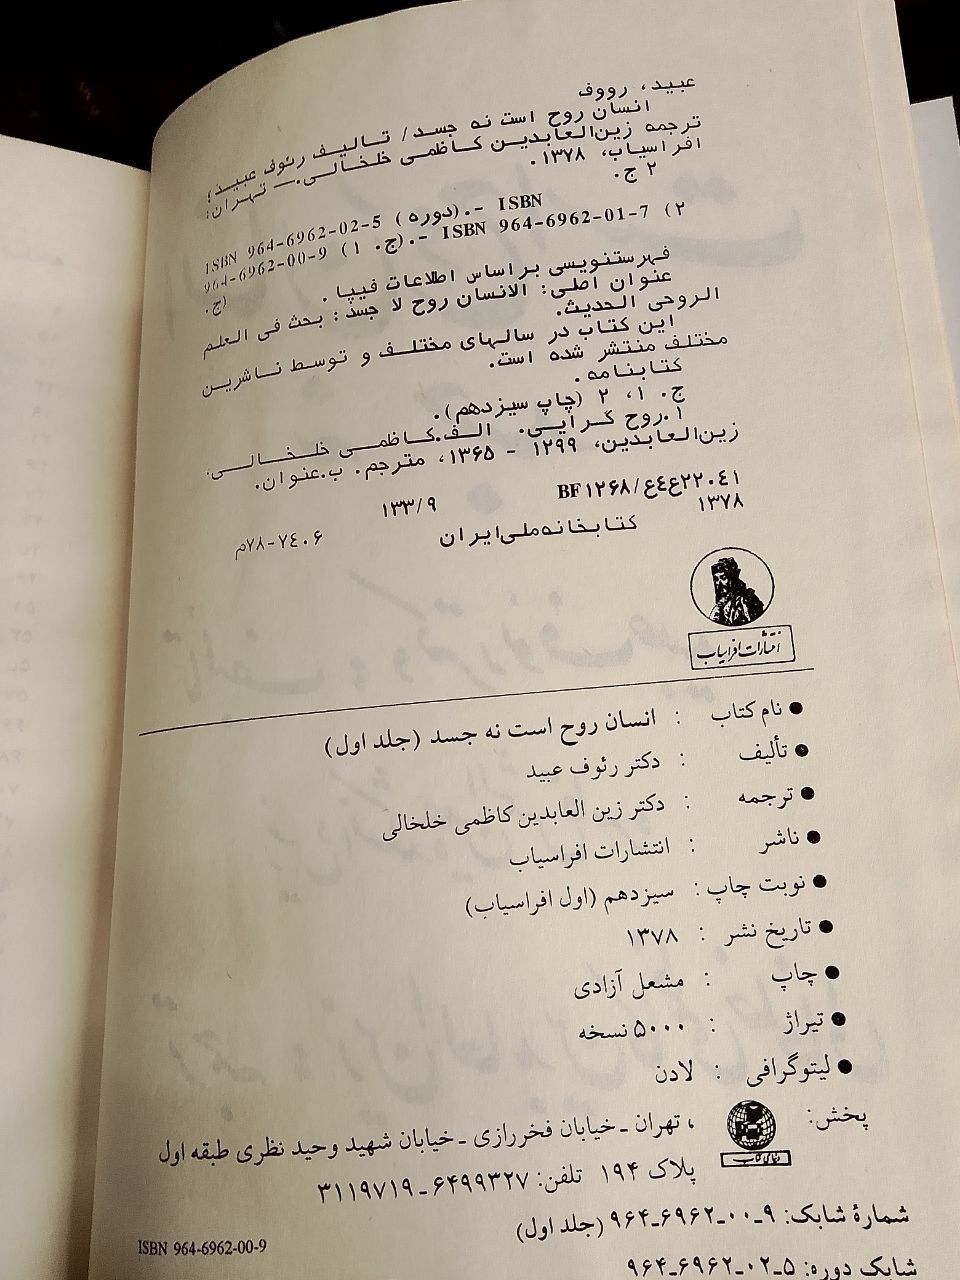 عبید، رووف
انسان روح است نه جسد / تالیف رئوف عبید؛
ترجمه زین‌العابدین کاظمی خلخالی. — تهران:
افراسیاب، ۱۳۷۸.
۲ ج.
ISBN 964-6962-02-5 (دوره) .- ISBN
964-6962-00-9 (ج. ۱) .- ISBN 964-6962-01-7 (ج. ۲)
فهرستنویسی براساس اطلاعات فیپا.
عنوان اصلی: الانسان روح لا جسد: بحث فی العلم
الروحی الحدیث.
این کتاب در سالهای مختلف و توسط ناشرین
مختلف منتشر شده است.
کتابنامه.
ج. ۱، ۲ (چاپ سیزدهم).
۱.روح گرایی. الف.کاظمی خلخالی،
زین‌العابدین، ۱۲۹۹ - ۱۳۶۵، مترجم. ب.عنوان.
۲۲۰۴۱ع۴ع/BF۱۲۶۸ ۱۳۳/۹
۱۳۷۸
کتابخانه ملی ایران ۷۴۰۶-۷۸م
انتشارات افراسیاب
● نام کتاب : انسان روح است نه جسد (جلد اول)
● تألیف : دکتر رئوف عبید
● ترجمه : دکتر زین العابدین کاظمی خلخالی
● ناشر : انتشارات افراسیاب
● نوبت چاپ : سیزدهم (اول افراسیاب)
● تاریخ نشر : ۱۳۷۸
● چاپ : مشعل آزادی
● تیراژ : ۵۰۰۰ نسخه
● لیتوگرافی : لادن
پخش: دنیای کتاب ، تهران ـ خیابان فخررازی ـ خیابان شهید وحید نظری طبقه اول
پلاک ۱۹۴ تلفن: ۶۴۹۹۳۲۷ـ۳۱۱۹۷۱۹
شمارهٔ شابک: ۹ـ۰۰ـ۶۹۶۲ـ۹۶۴ (جلد اول)
ISBN 964-6962-00-9
شابک دوره: ۵ـ۰۲ـ۶۹۶۲ـ۹۶۴